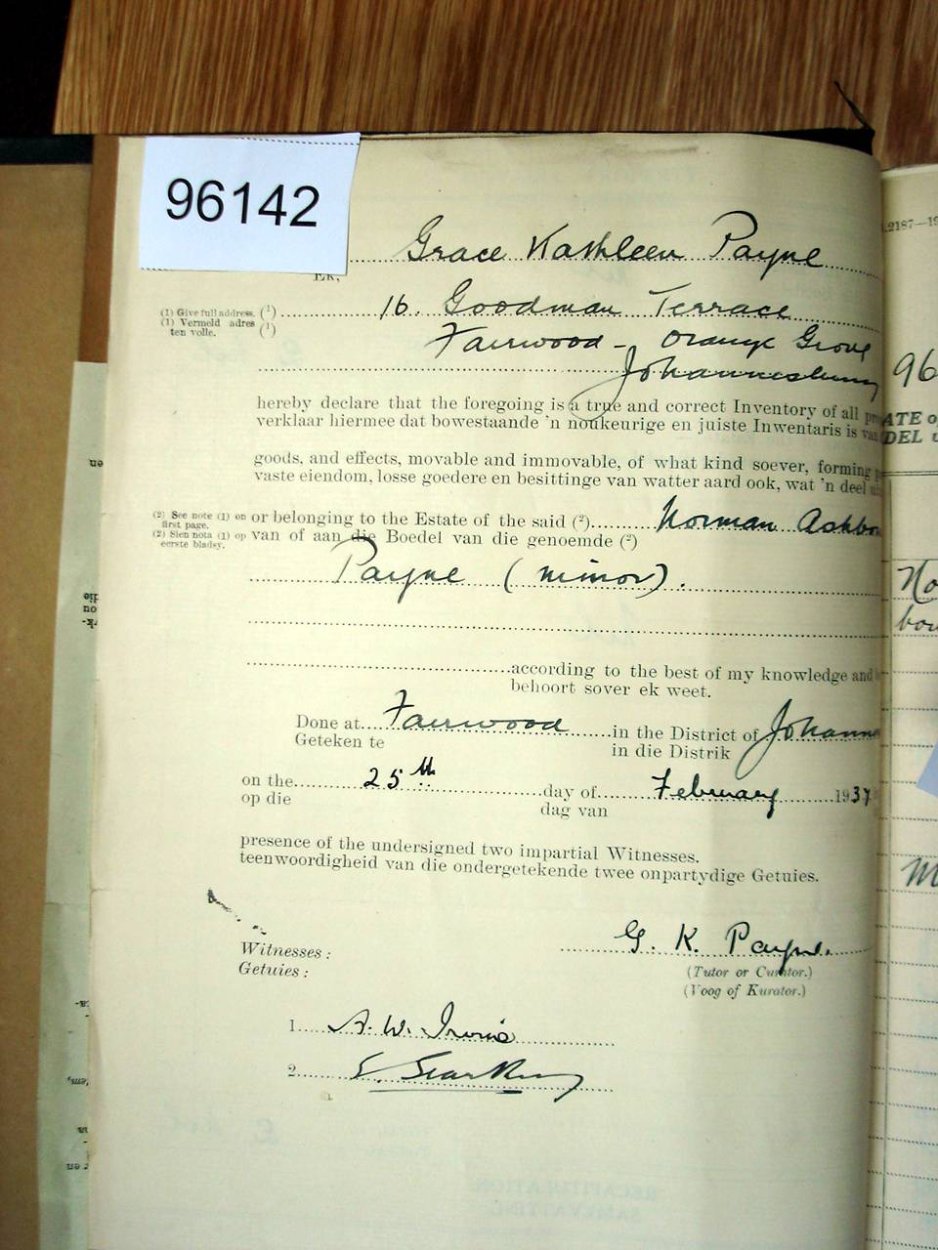 96142
Grace Kathleen Payne
EK,
(1) Give full address. (1) 16. Goodman Terrace
(1) Vermeld adres ten volle. (1)
Fairwood - Orange Grove
Johannesburg
hereby declare that the foregoing is a true and correct Inventory of all
verklaar hiermee dat bowestaande 'n noukeurige en juiste Inwentaris is van
goods, and effects, movable and immovable, of what kind soever, forming
vaste eiendom, losse goedere en besittinge van watter aard ook, wat 'n deel
(2) See note (1) on first page. or belonging to the Estate of the said (2) Norman Ashbo
(2) Sien nota (1) op eerste bladsy. van of aan die Boedel van die genoemde (2)
Payne (minor).
according to the best of my knowledge and
behoort sover ek weet.
Done at Fairwood in the District of Johann
Geteken te in die Distrik
on the 25th day of February 1937
op die dag van
presence of the undersigned two impartial Witnesses.
teenwoordigheid van die ondergetekende twee onpartydige Getuies.
Witnesses: G. K. Payne.
Getuies: (Tutor or Curator.)
(Voog of Kurator.)
1. A. W. Irvine
2.
2187-19
96
ATE o
DEL
No
bou
M